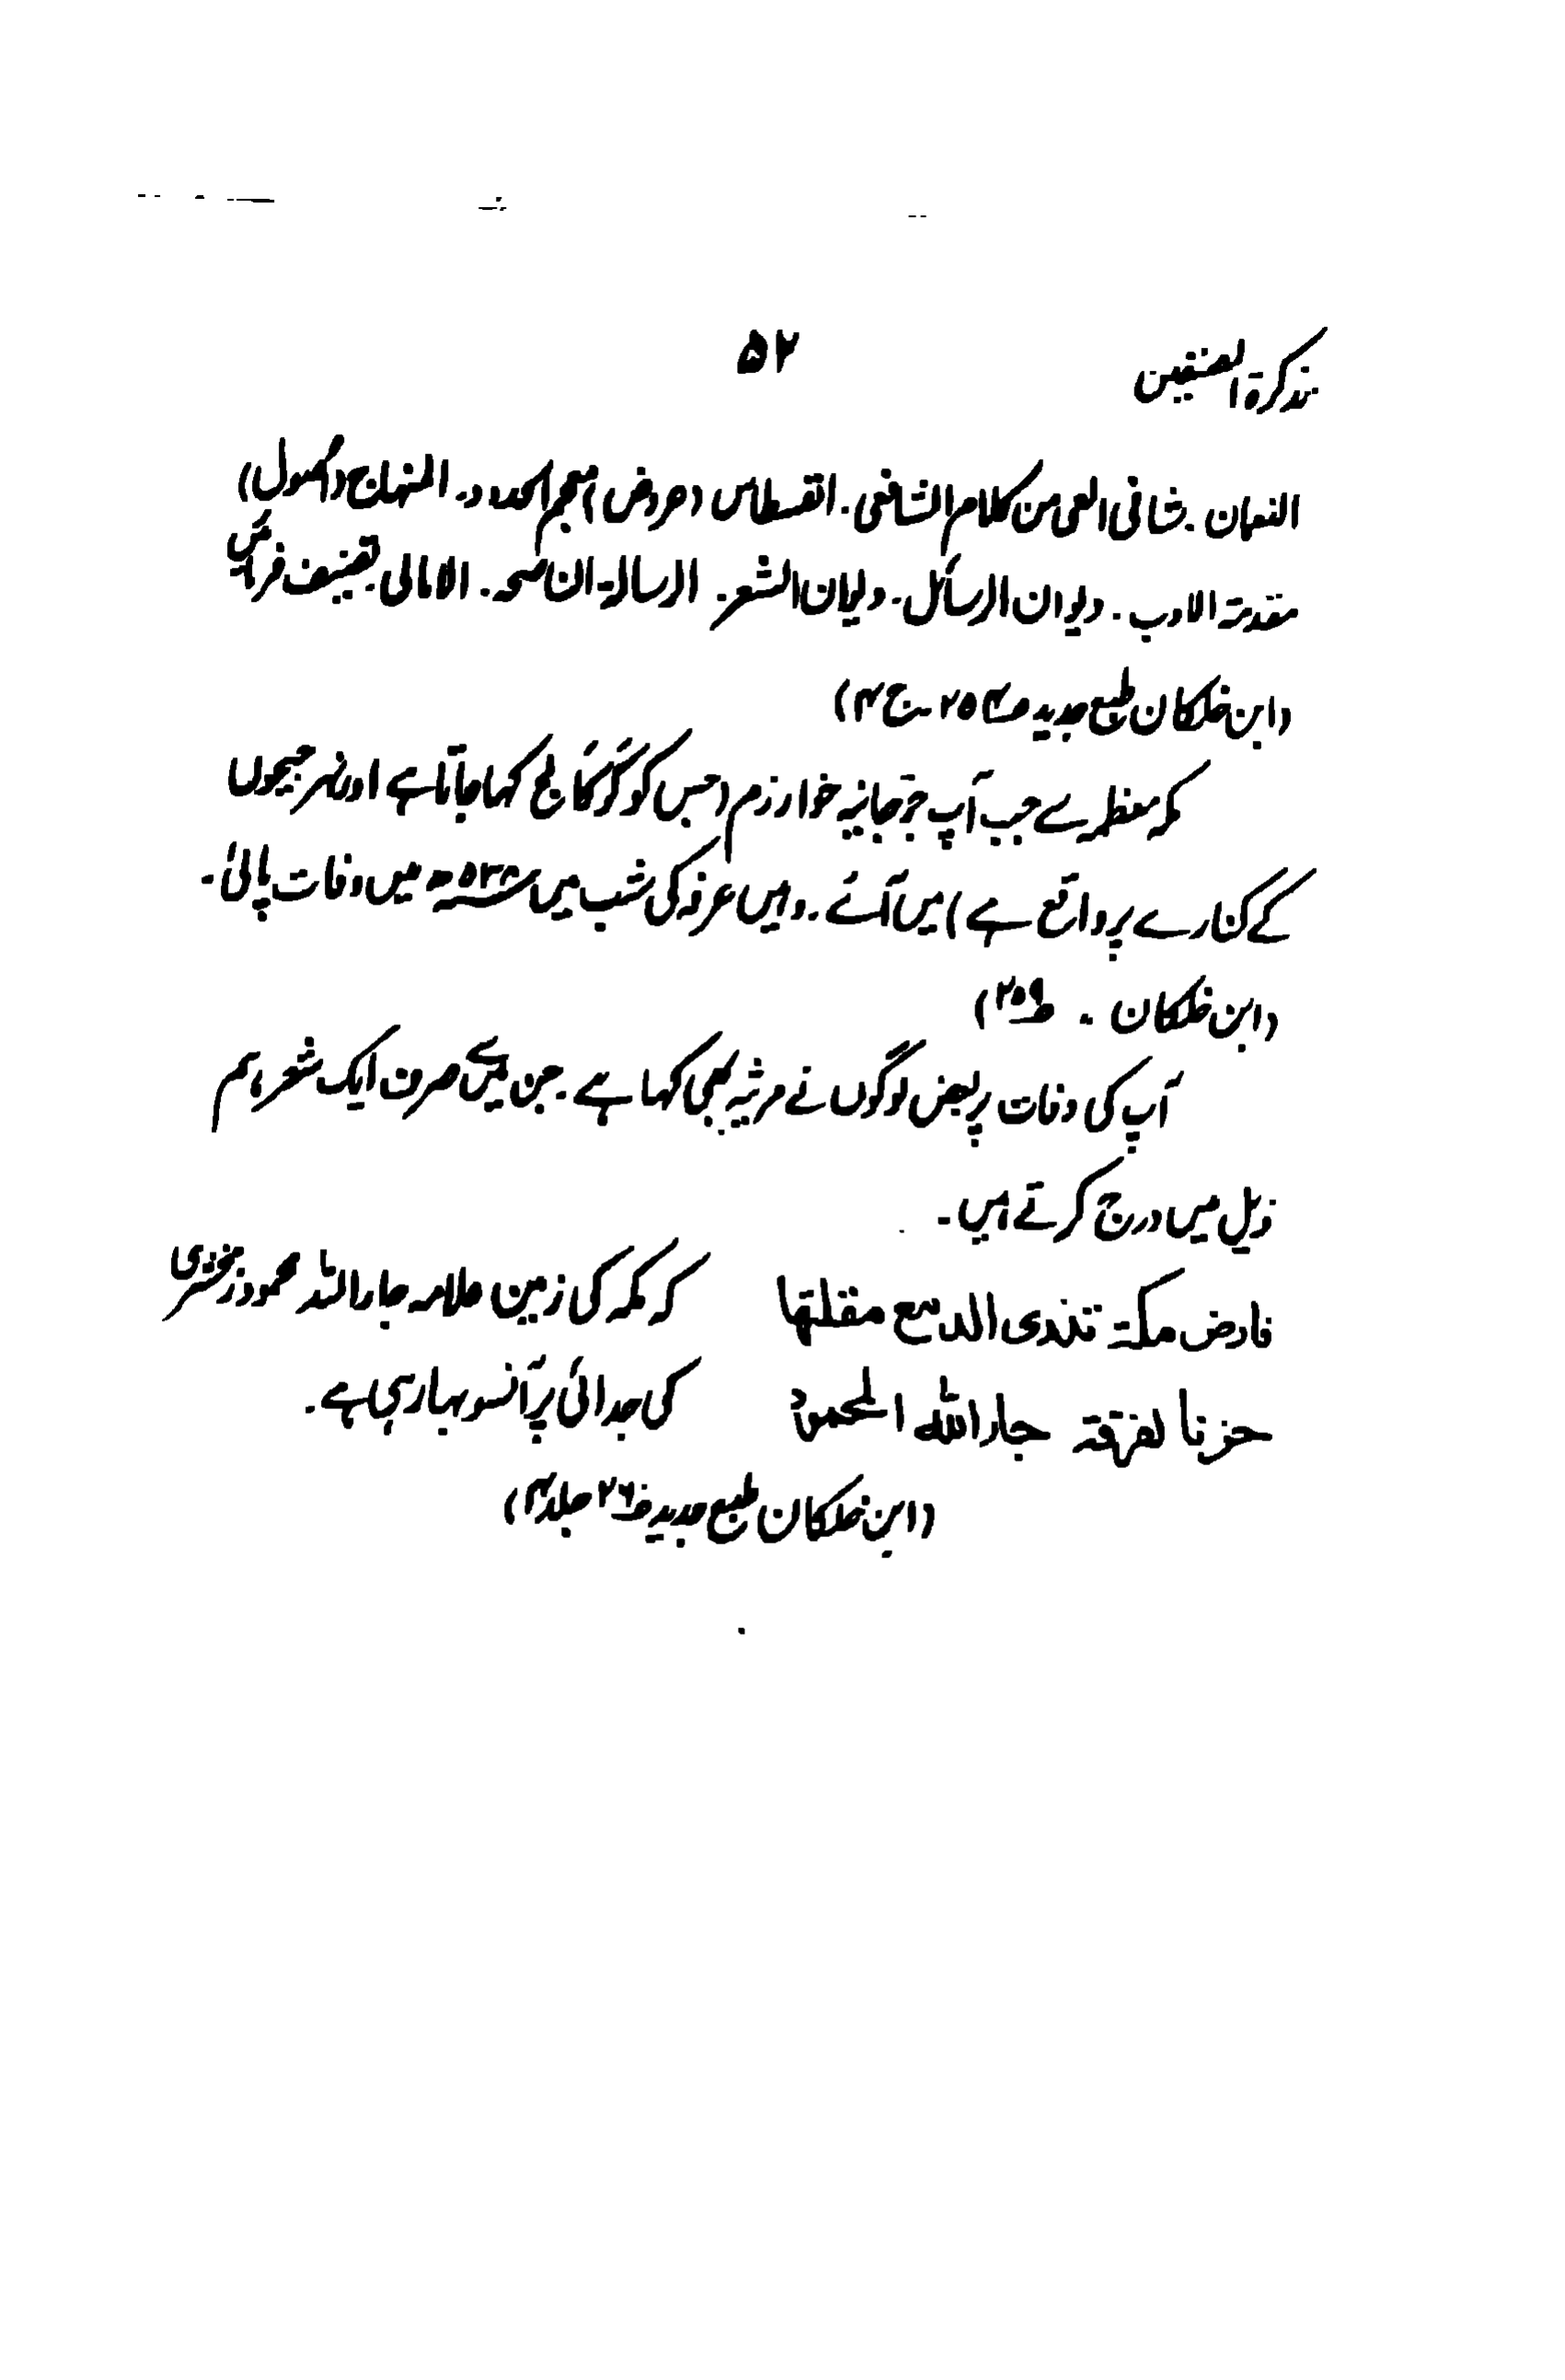 تذکرۃ المصنفین ۵۲
النعمان ۔ شافی العی من کلام الشافعی ۔ القسطاس (عروض) معجم الحدود ۔ المنہاج (اصول)
مقدمۃ الادب ۔ دیوان الرسائل ۔ دیوان الشعر ۔ الرسالۃ الناصحہ ۔ الامالی تصنیف فرمائیں
(ابن خلکان طبع جدید ج ۴)
مکہ معظمہ سے جب آپ جرجانیہ خوارزم (جس کو گرگانج کہا جاتا ہے اور نہر جیحون
کے کنارے پر واقع ہے) میں آئے ۔ وہیں عرفہ کی شب میں ۵۳۸ھ میں وفات پائی ۔
(ابن خلکان ۔ ص۲۵۹)
آپ کی وفات پر بعض لوگوں نے مرثیہ بھی کہا ہے ۔ جن میں سے صرف ایک شعر ہم
ذیل میں درج کرتے ہیں ۔
فارض مکۃ تذری الدمع مقلتھا کہ مکہ کی زمین علامہ جار اللہ محمود زمخشری
حزنا لفرقۃ جار اللہ المحمود کی جدائی پر آنسو بہا رہی ہے ۔
(ابن خلکان طبع جدید ص۲۶ جلد ۴)